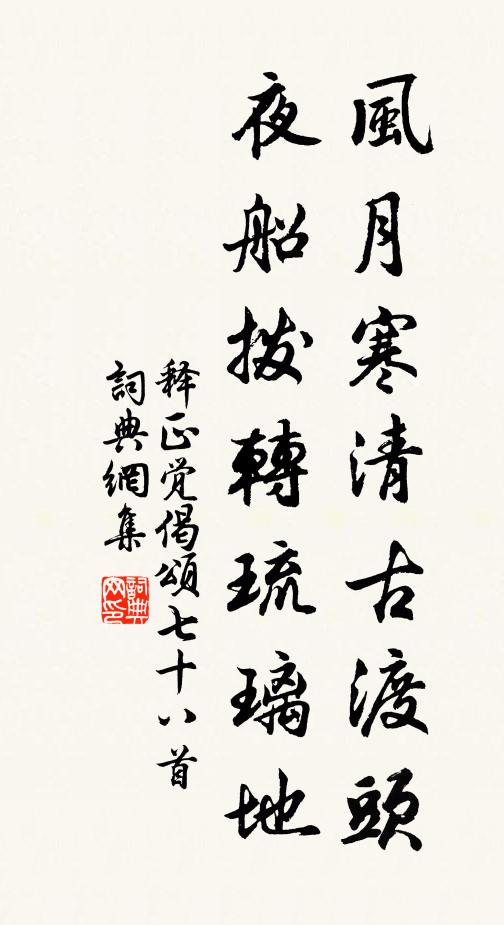 風月寒清古渡頭
夜船撥轉琉璃地
释正觉偈頌七十八首
詞典網集
詞典網印